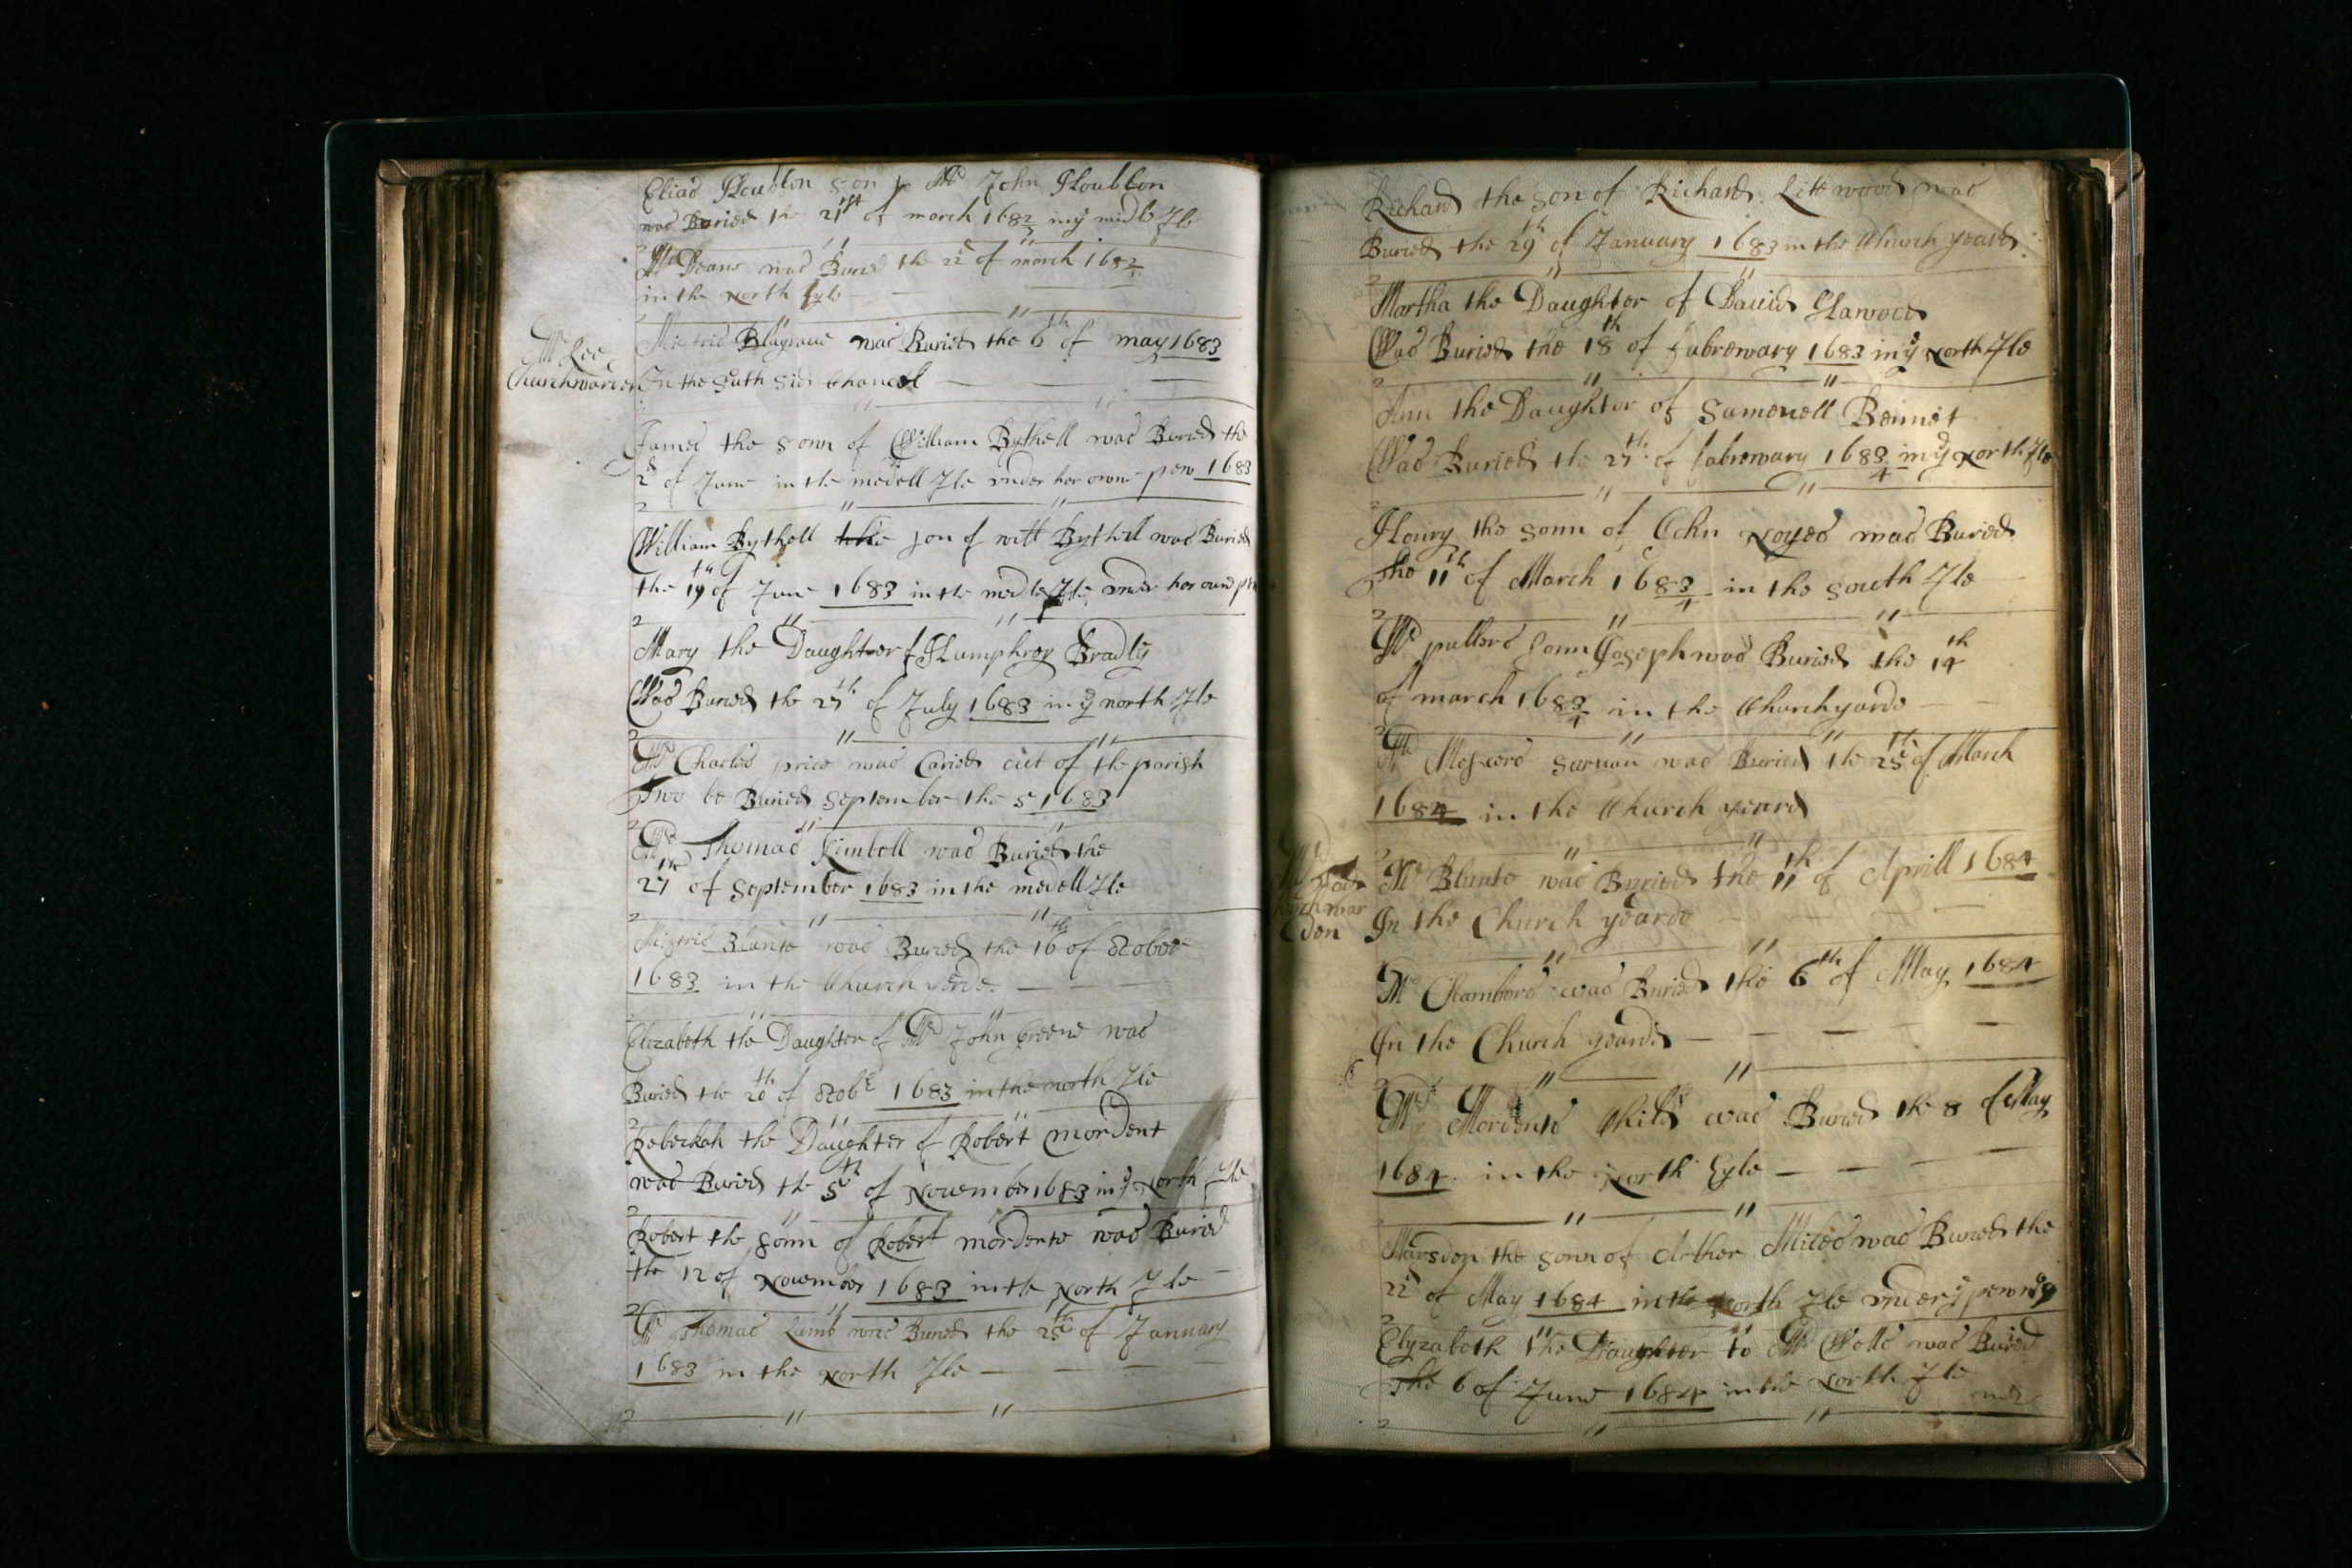 Elias Houblon son to Mr John Houblon
was Buried the 21st of march 1682/3 in ye midle Ile
Mr Deane was Buried the 22 of march 1682/3
in the North Eyle
Mr Lee
Churchwarden
Mistris Blagraue was Buried the 6th of may 1683
In the South Sid Chancel
James the sonn of William Bythell was Buried the
2d of June in the medell Ile vnder her owne pew 1683
William Bythell the son of will Bythell was Buried
the 19th of June 1683 in the medle Ile vnder her own pew
Mary the Daughter of Humphrey Bradly
Was Buried the 27th of July 1683 in ye north Ile
Mr Charles price was Caried out of the parish
Two be Buried September the 5 1683
Mr Thomas Kimbell was Buried the
27th of September 1683 in the medell Ile
Mistris Blunte was Buried the 16th of October
1683 in the Church yerde
Elizabeth the Daughter of Mr John Greene was
Buried the 20th of Octobr 1683 in the north Ile
Rebeckah the Daughter of Robert Mordent
was Buried the 5th of November 1683 in ye North Ile
Robert the Sonn of Robert mordente was Buried
the 12 of November 1683 in the North Ile
Mr Thomas Lamb was Buried the 25th of January
1683 in the North Ile
Richard the Son of Richard Littwood was
Buried the 29th of January 1683 in the Church yeard
Martha the Daughter of David Harwood
Was Buried the 18th of fabrewary 1683 in ye North Ile
Ann the Daughter of Samewell Bennet
Was Buried the 27th of fabrewary 1683/4 in ye North Ile
Henry the Sonn of John Noyes was Buried
The 11th of March 1683/4 in the South Ile
Mr pullers Sonn Joseph was Buried the 14th
of march 1683/4 in the Churchyarde
Mr was Buried the 25th of March
1684 in the Church yeard
Mr
den
Mr Blunte was Buried the 11th of Aprill 1684
In the Church yearde
Mr was Buried the 6th of May 1684
In the Church yearde
Mr Mordents Child was Buried the 8 of May
1684 in the North Eyle
Marsdon the sonn of Arther Miles was Buried the
22d of May 1684 in the North Ile vnder ye pew
Elyzabeth the Daughter to Mr was Buried
The 6 of June 1684 in the North Ile